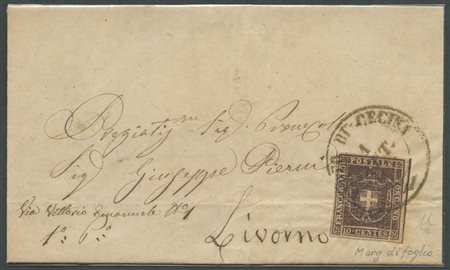 Pregiatis.mo Sig. Prone Col.mo
Sig Giuseppe Pierini
Via Vittorio Emanuele No 1
1o: 6o:
Livorno
DI CECINA
FRANCOBOLLO
POSTALE
TOSCANO
10 CENTES
Marg di foglio